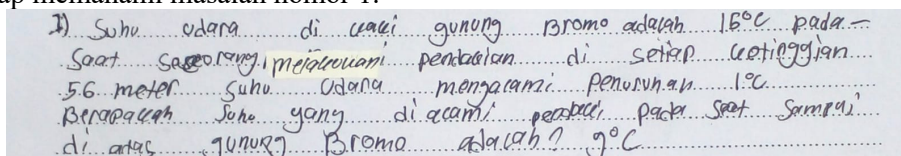 ap memahami masalah nomor 1.
1) Suhu udara di kaki gunung Bromo adalah 16°C pada-
Saat seseorang melakukani pendakian di setiap ketinggian
56 meter Suhu Udara mengalami Penurunan 1°C
Berapakah Suhu yang di alami pendaki Pada Saat Sampai
di atas gunung Bromo adalah? 9°C